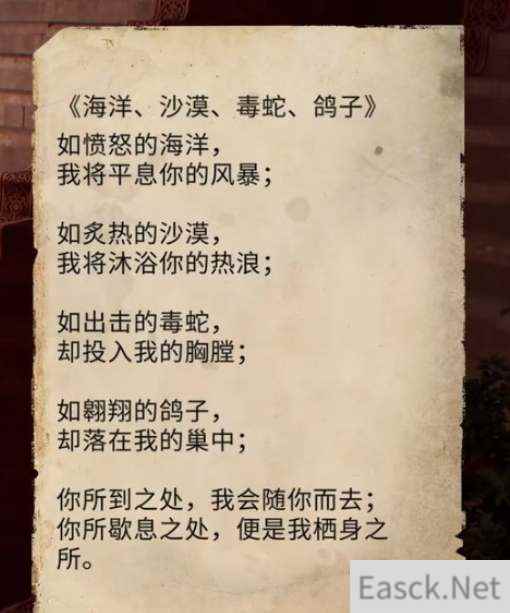 《海洋、沙漠、毒蛇、鸽子》
如愤怒的海洋，
我将平息你的风暴；
如炙热的沙漠，
我将沐浴你的热浪；
如出击的毒蛇，
却投入我的胸膛；
如翱翔的鸽子，
却落在我的巢中；
你所到之处，我会随你而去；
你所歇息之处，便是我栖身之
所。
Easck.Net